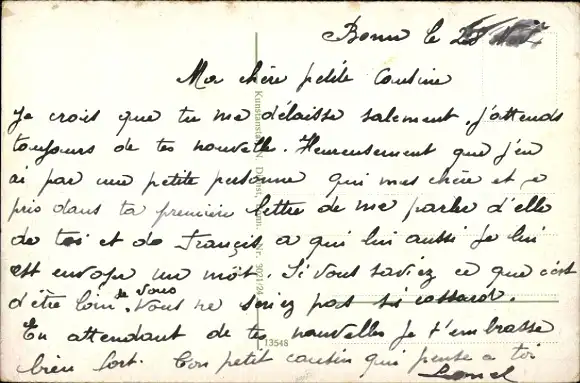 Bonn le 28
Ma chère petite Cousine
Je crois que tu me délaisse salement, j'attends
toujours de tes nouvelle. Heureusement que j'en
ai par une petite personne qui mes chère et e
pris dans ta première lettre de me parler d'elle
de toi et de François a qui lui aussi je lui
est envoye un môt. Si vous saviez ce que c'est
d'être loin de vous. Vous ne seriez pas si rossard.
En attendant de tes nouvelles je t'embrasse
bien fort. Ton petit cousin qui pense a toi
Kunstanstalt N.
13548